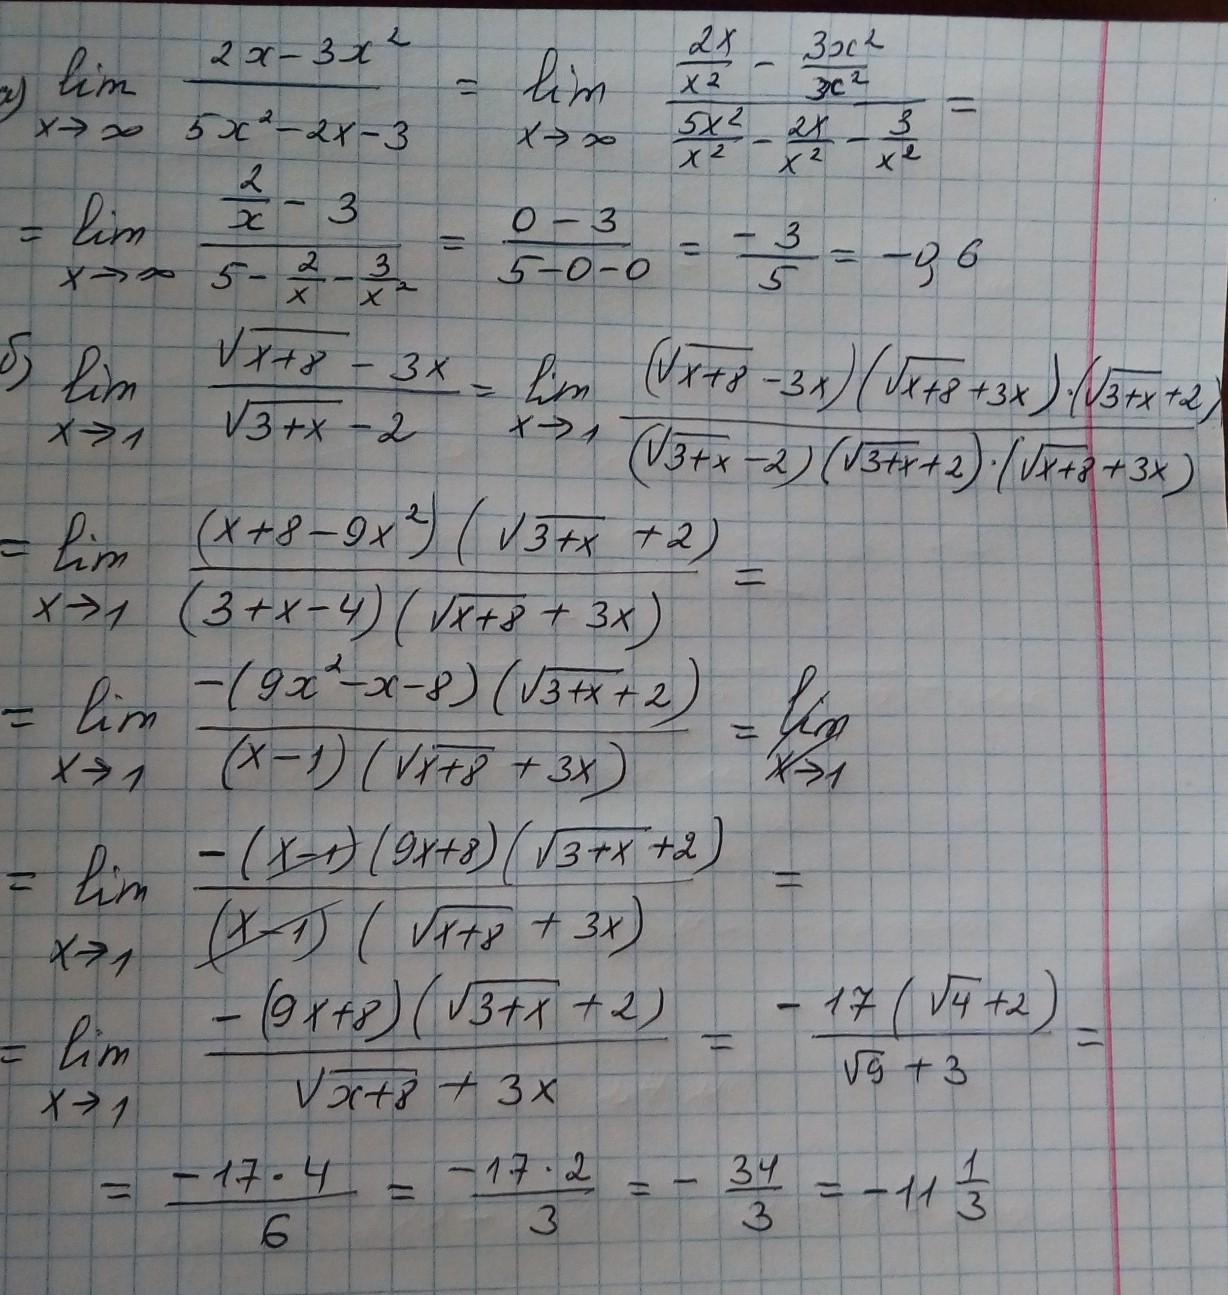 а) lim x→∞ (2x-3x²)/(5x²-2x-3) = lim x→∞ (2x/x² - 3x²/x²)/(5x²/x² - 2x/x² - 3/x²) =
= lim x→∞ (2/x - 3)/(5 - 2/x - 3/x²) = (0-3)/(5-0-0) = -3/5 = -0,6
б) lim x→1 (√(x+8) - 3x)/(√(3+x) - 2) = lim x→1 ((√(x+8) - 3x)(√(x+8) + 3x)·(√(3+x) + 2))/((√(3+x) - 2)(√(3+x) + 2)·(√(x+8) + 3x))
= lim x→1 ((x+8-9x²)(√(3+x) + 2))/((3+x-4)(√(x+8) + 3x)) =
= lim x→1 (-(9x²-x-8)(√(3+x) + 2))/((x-1)(√(x+8) + 3x)) = lim x→1
= lim x→1 (-(x-1)(9x+8)(√(3+x) + 2))/((x-1)(√(x+8) + 3x)) =
= lim x→1 (-(9x+8)(√(3+x) + 2))/(√(x+8) + 3x) = (-17(√4 + 2))/(√9 + 3) =
= (-17·4)/6 = (-17·2)/3 = -34/3 = -11 1/3